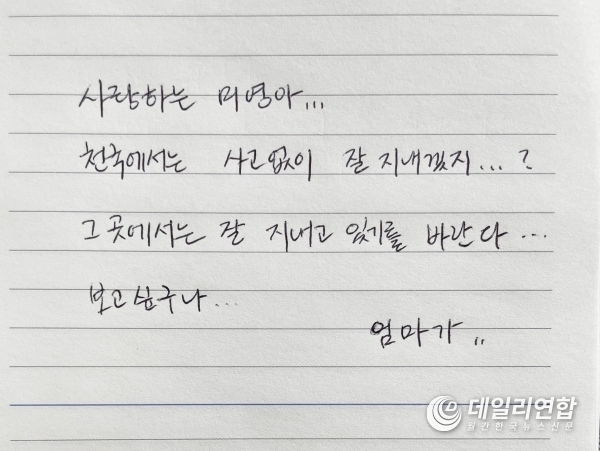 사랑하는 미영아...
천국에서는 사고없이 잘 지내겠지...?
그 곳에서는 잘 지내고 있기를 바란다...
보고싶구나...
엄마가..
데일리연합
월간한국뉴스신문